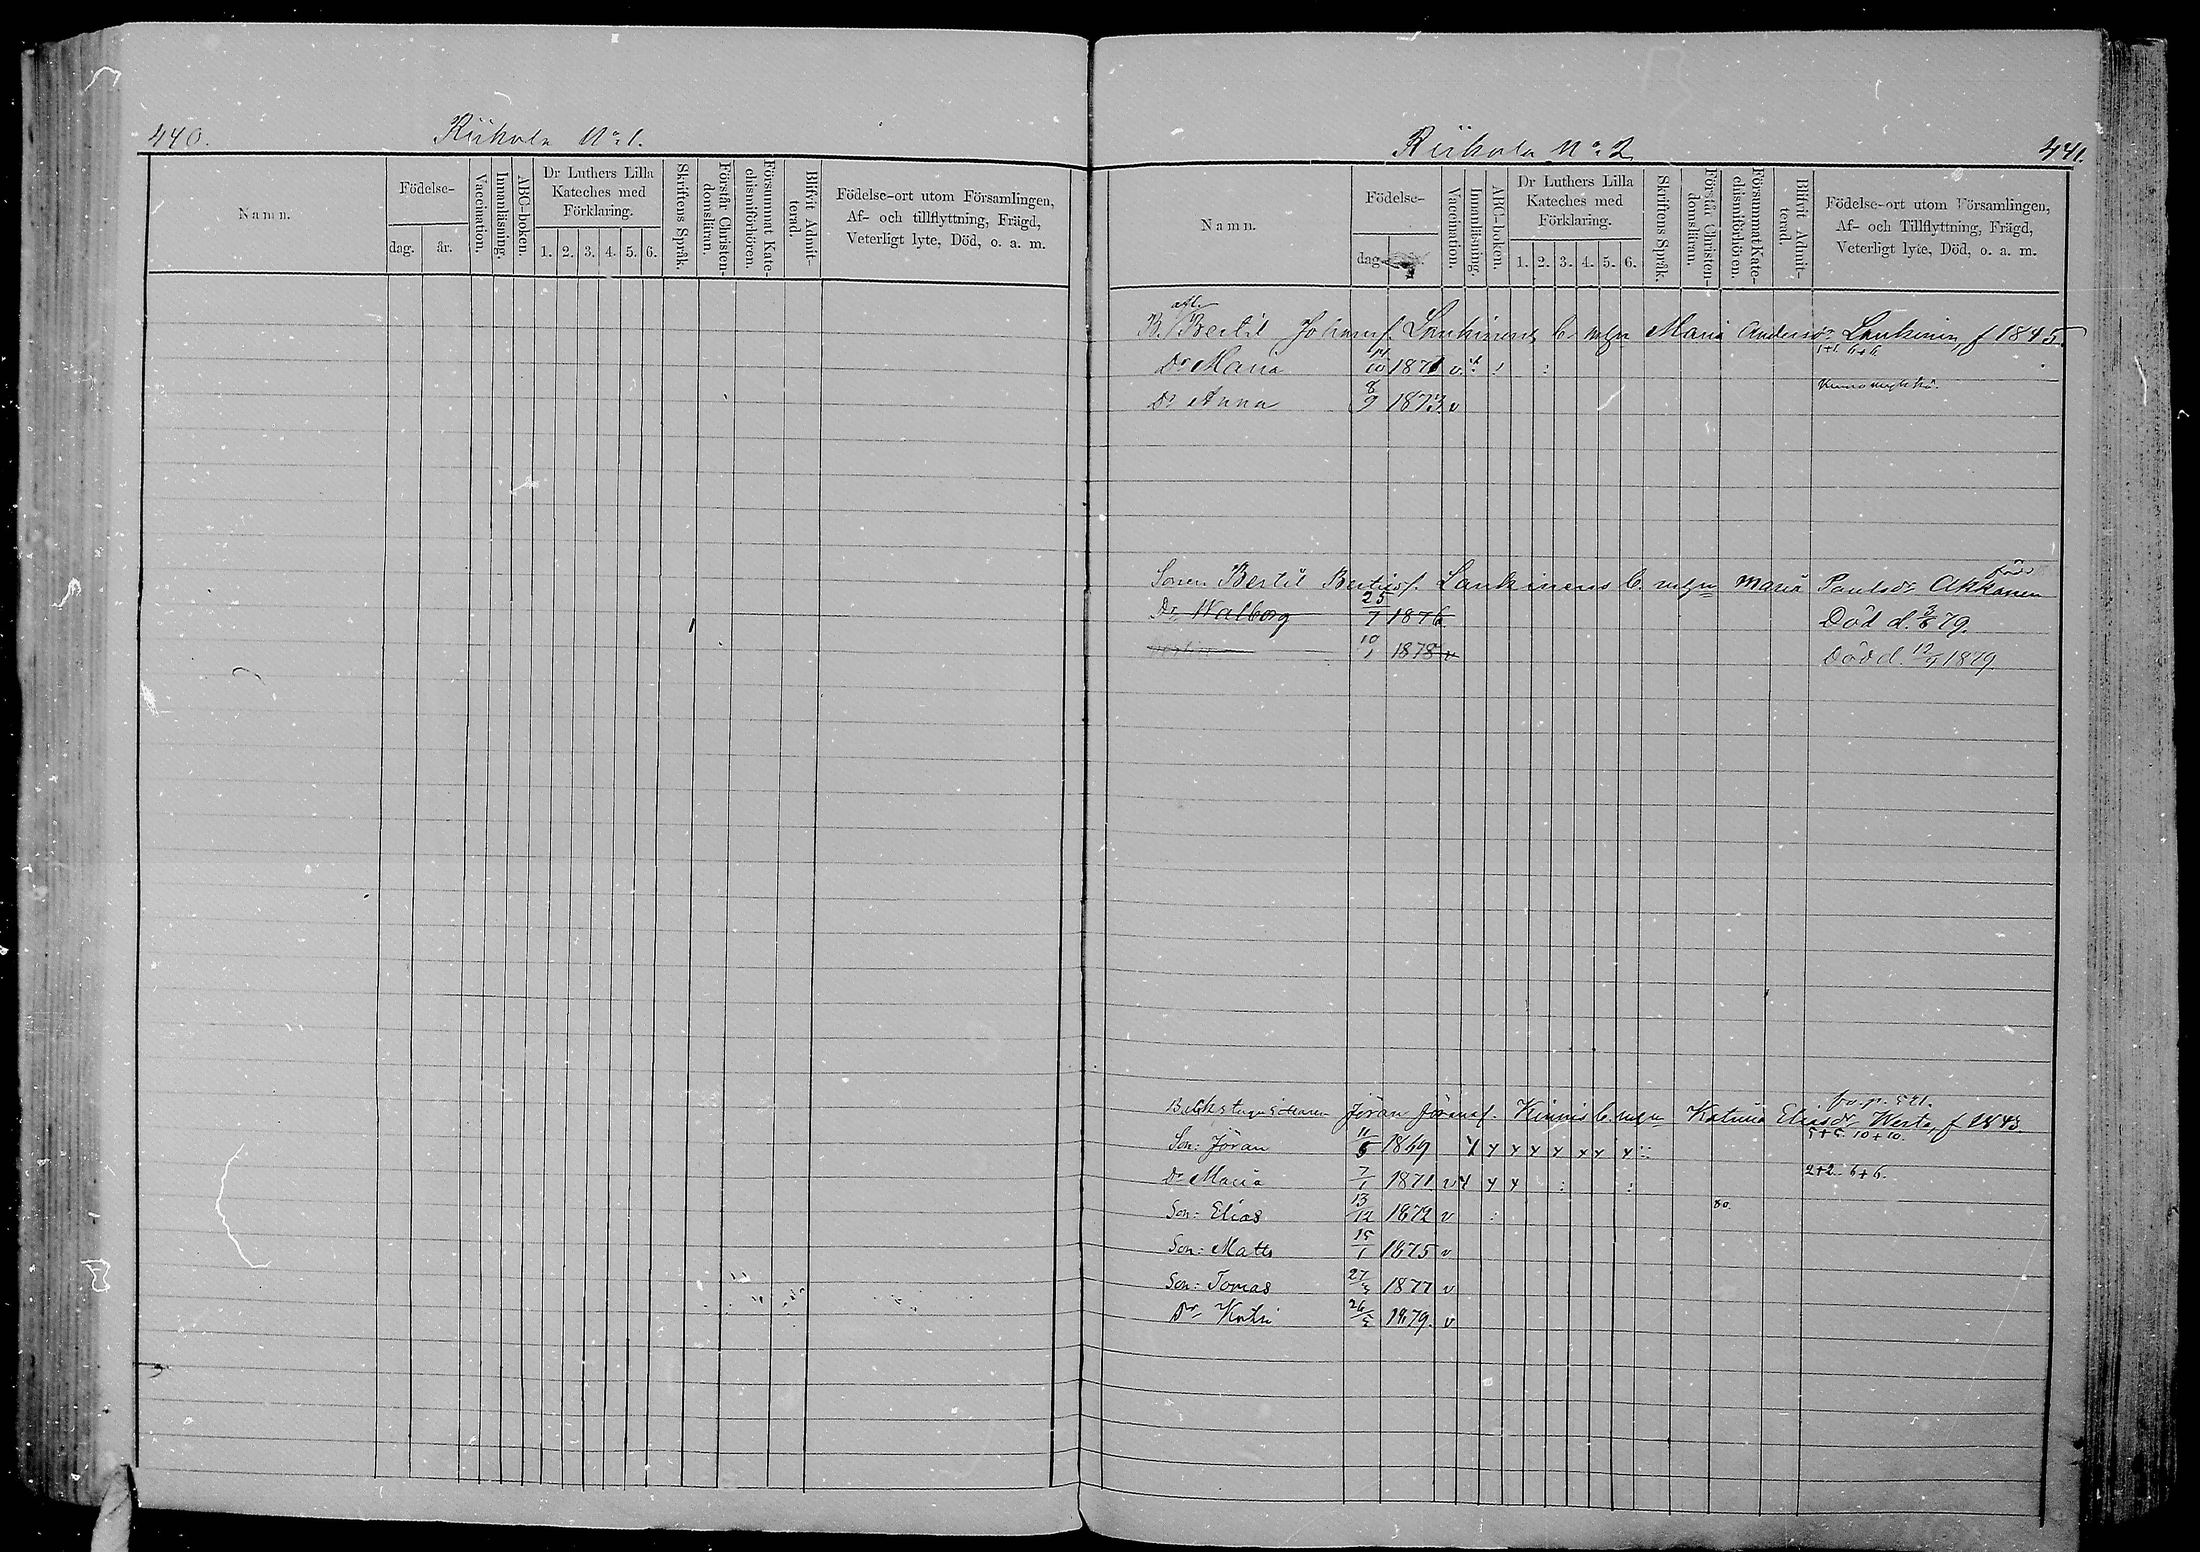 440.
Riihola No 1.
Namn.
Födelse-
dag.
år.
Vaccination.
Innanläsning.
ABC-boken.
Dr Luthers Lilla
Kateches med
Förklaring.
1. 2. 3. 4. 5. 6.
Skriftens Språk.
Förstår Christen-
domsläran.
Försummat Kate-
chismiförhören.
Blifvit Admit-
terad.
Födelse-ort utom Församlingen,
Af- och tillflyttning, Frägd,
Veterligt lyte, Död, o. a. m.
Riihola No 2
441.
Namn.
Födelse-
dag
Vaccination.
Innanläsning.
ABC-boken.
Dr Luthers Lilla
Kateches med
Förklaring.
1. 2. 3. 4. 5. 6.
Skriftens Språk.
Förstår Christen-
domsläran.
Försummat Kate-
chismiförhören.
Blifvit Admit-
terad.
Födelse-ort utom Församlingen,
Af- och Tillflyttning, Frägd,
Veterligt lyte, Död, o. a. m.
B. Bertil Johansf. Lankinens o. m. hu Maria Andersdr Lankinen f 1845
1+1. 6+6
Dr Maria 14/10 1871 v
Dr Anna 8/9 1873 v
Sonen Bertil Bertilsf. Lankinens Maria Paulsdr Akkanen
Dr Walborg 25/7 1876 Död d. 79.
10/1 1878 v Död d. 1879
fr. p. 521.
Jöran Jöransf. Kinnis Katrina Eliasdr Westa, f 1843
5+5. 10+10.
Son: Jöran 11/6 1869
2+2 6+6.
Dr Maria 7/1 1871 v
80.
Son: Elias 13/12 1872 v
Son: Matts 15/1 1875 v
Son: Tomas 27/3 1877 v
Dr Katri 26/5 1879. v